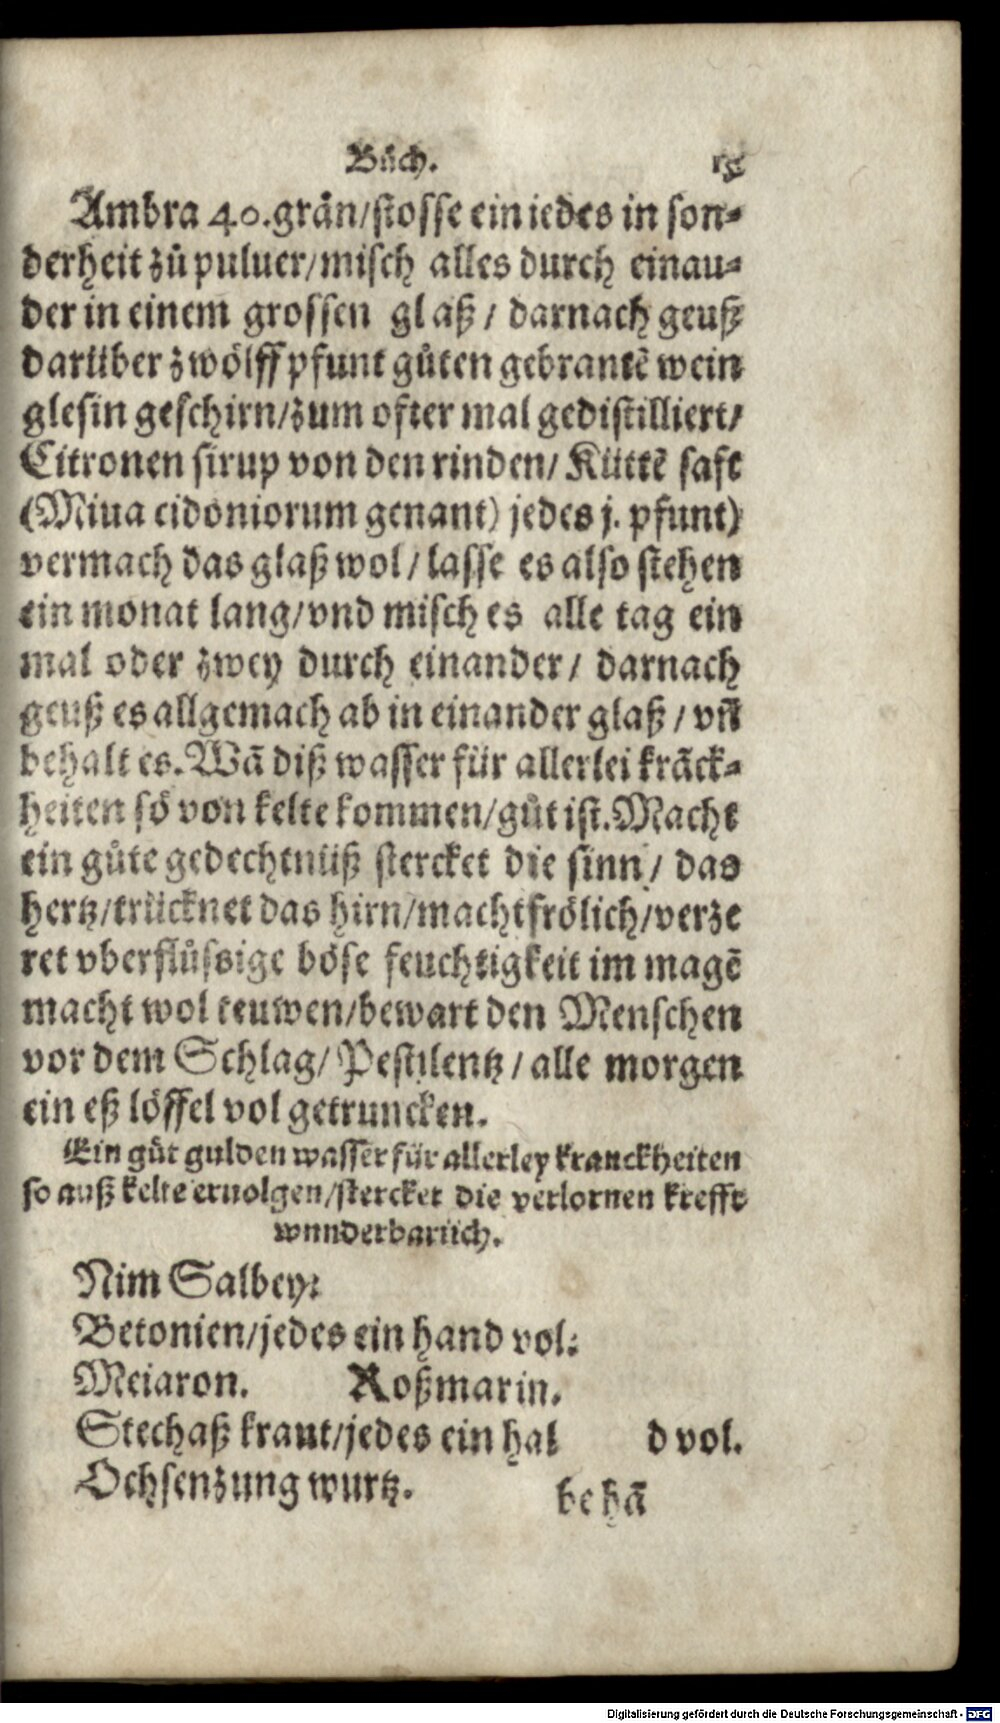 Bůch.
Ambra 40. grän/stosse ein iedes in son⸗
derheit zů puluer/misch alles durch einau⸗
der in einem grossen glaß/ darnach geuß
darüber zwölff pfunt gůten gebrantē wein
glesin geschirn/zum ofter mal gedistilliert/
Citronen sirup von den rinden/ Küttē saft
(Miua cidoniorum genant) jedes j. pfunt)
vermach das glaß wol/ lasse es also stehen
ein monat lang/vnd misch es alle tag ein
mal oder zwey durch einander/ darnach
geuß es allgemach ab in einander glaß/ vñ
behalt es. Wā diß wasser für allerlei krāck⸗
heiten sö von kelte kommen/gůt ist. Macht
ein gůte gedechtnüß stercket die sinn/ das
hertz/trücknet das hirn/macht frölich/verze
ret vberflüssige böse feuchtigkeit im magē
macht wol teuwen/bewart den Menschen
vor dem Schlag/ Pestilentz/ alle morgen
ein eß löffel vol getruncken.
Ein gůt gulden wasser für allerley kranckheiten
so auß kelte ervolgen/stercket die verlornen krefft
wunderbarlich.
Nim Salbey:
Betonien/jedes ein hand vol:
Meiaron. Roßmarin.
Stechaß kraut/jedes ein hal d vol.
Ochsenzung wurtz.
be hā
Digitalisierung gefördert durch die Deutsche Forschungsgemeinschaft - DFG